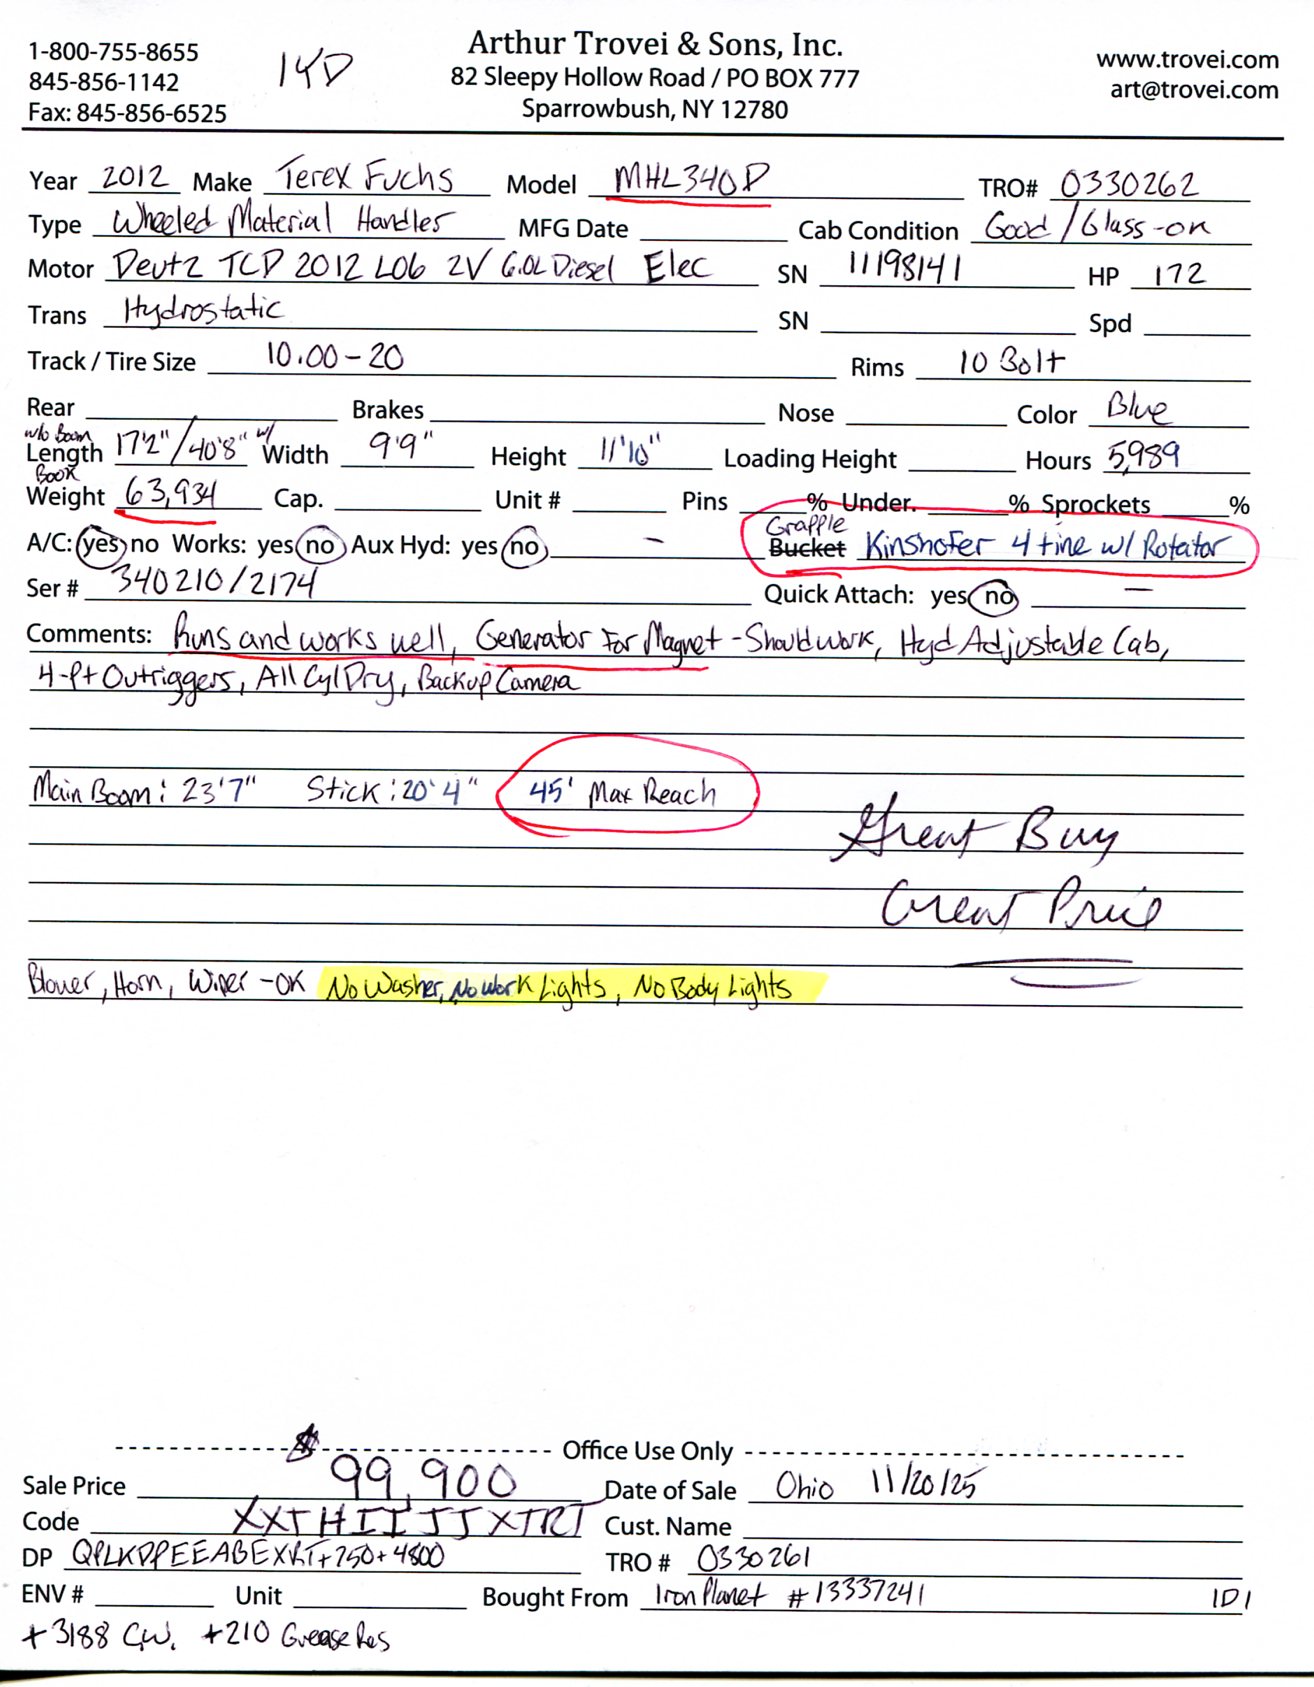 1-800-755-8655
845-856-1142
Fax: 845-856-6525
1YD
Arthur Trovei & Sons, Inc.
82 Sleepy Hollow Road / PO BOX 777
Sparrowbush, NY 12780
www.trovei.com
art@trovei.com
Year 2012 Make Terex Fuchs Model MHL340D TRO# 0330262
Type Wheeled Material Handler MFG Date Cab Condition Good / Glass-ok
Motor Deutz TCD 2012 L06 2V 6.0L Diesel Elec SN 11198141 HP 172
Trans Hydrostatic SN Spd
Track / Tire Size 10.00-20 Rims 10 Bolt
Rear Brakes Nose Color Blue
w/o Boom
Length 17'2" / 40'8" w/ Width 9'9" Height 11'10" Loading Height Hours 5,989
Book
Weight 63,934 Cap. Unit # Pins % Under. % Sprockets %
Grapple
A/C: yes no Works: yes no Aux Hyd: yes no - Bucket Kinshofer 4 tine w/ Rotator
Ser # 340210/2174 Quick Attach: yes no -
Comments: Runs and works well, Generator For Magnet - Should work, Hyd Adjustable Cab,
4-Pt Outriggers, All Cyl Dry, Backup Camera
Main Boom: 23'7" Stick: 20'4" 45' Max Reach
Great Buy
Great Price
Blower, Horn, Wiper - OK No Washer, No Work Lights, No Body Lights
Office Use Only
Sale Price $99,900 Date of Sale Ohio 11/20/25
Code XXTHIIJJXTRT Cust. Name
DP QPLKDPEEABEXRT+250+4800 TRO # 0330261
ENV # Unit Bought From Iron Planet #13337241 1D1
+3188 C.W. +210 Grease